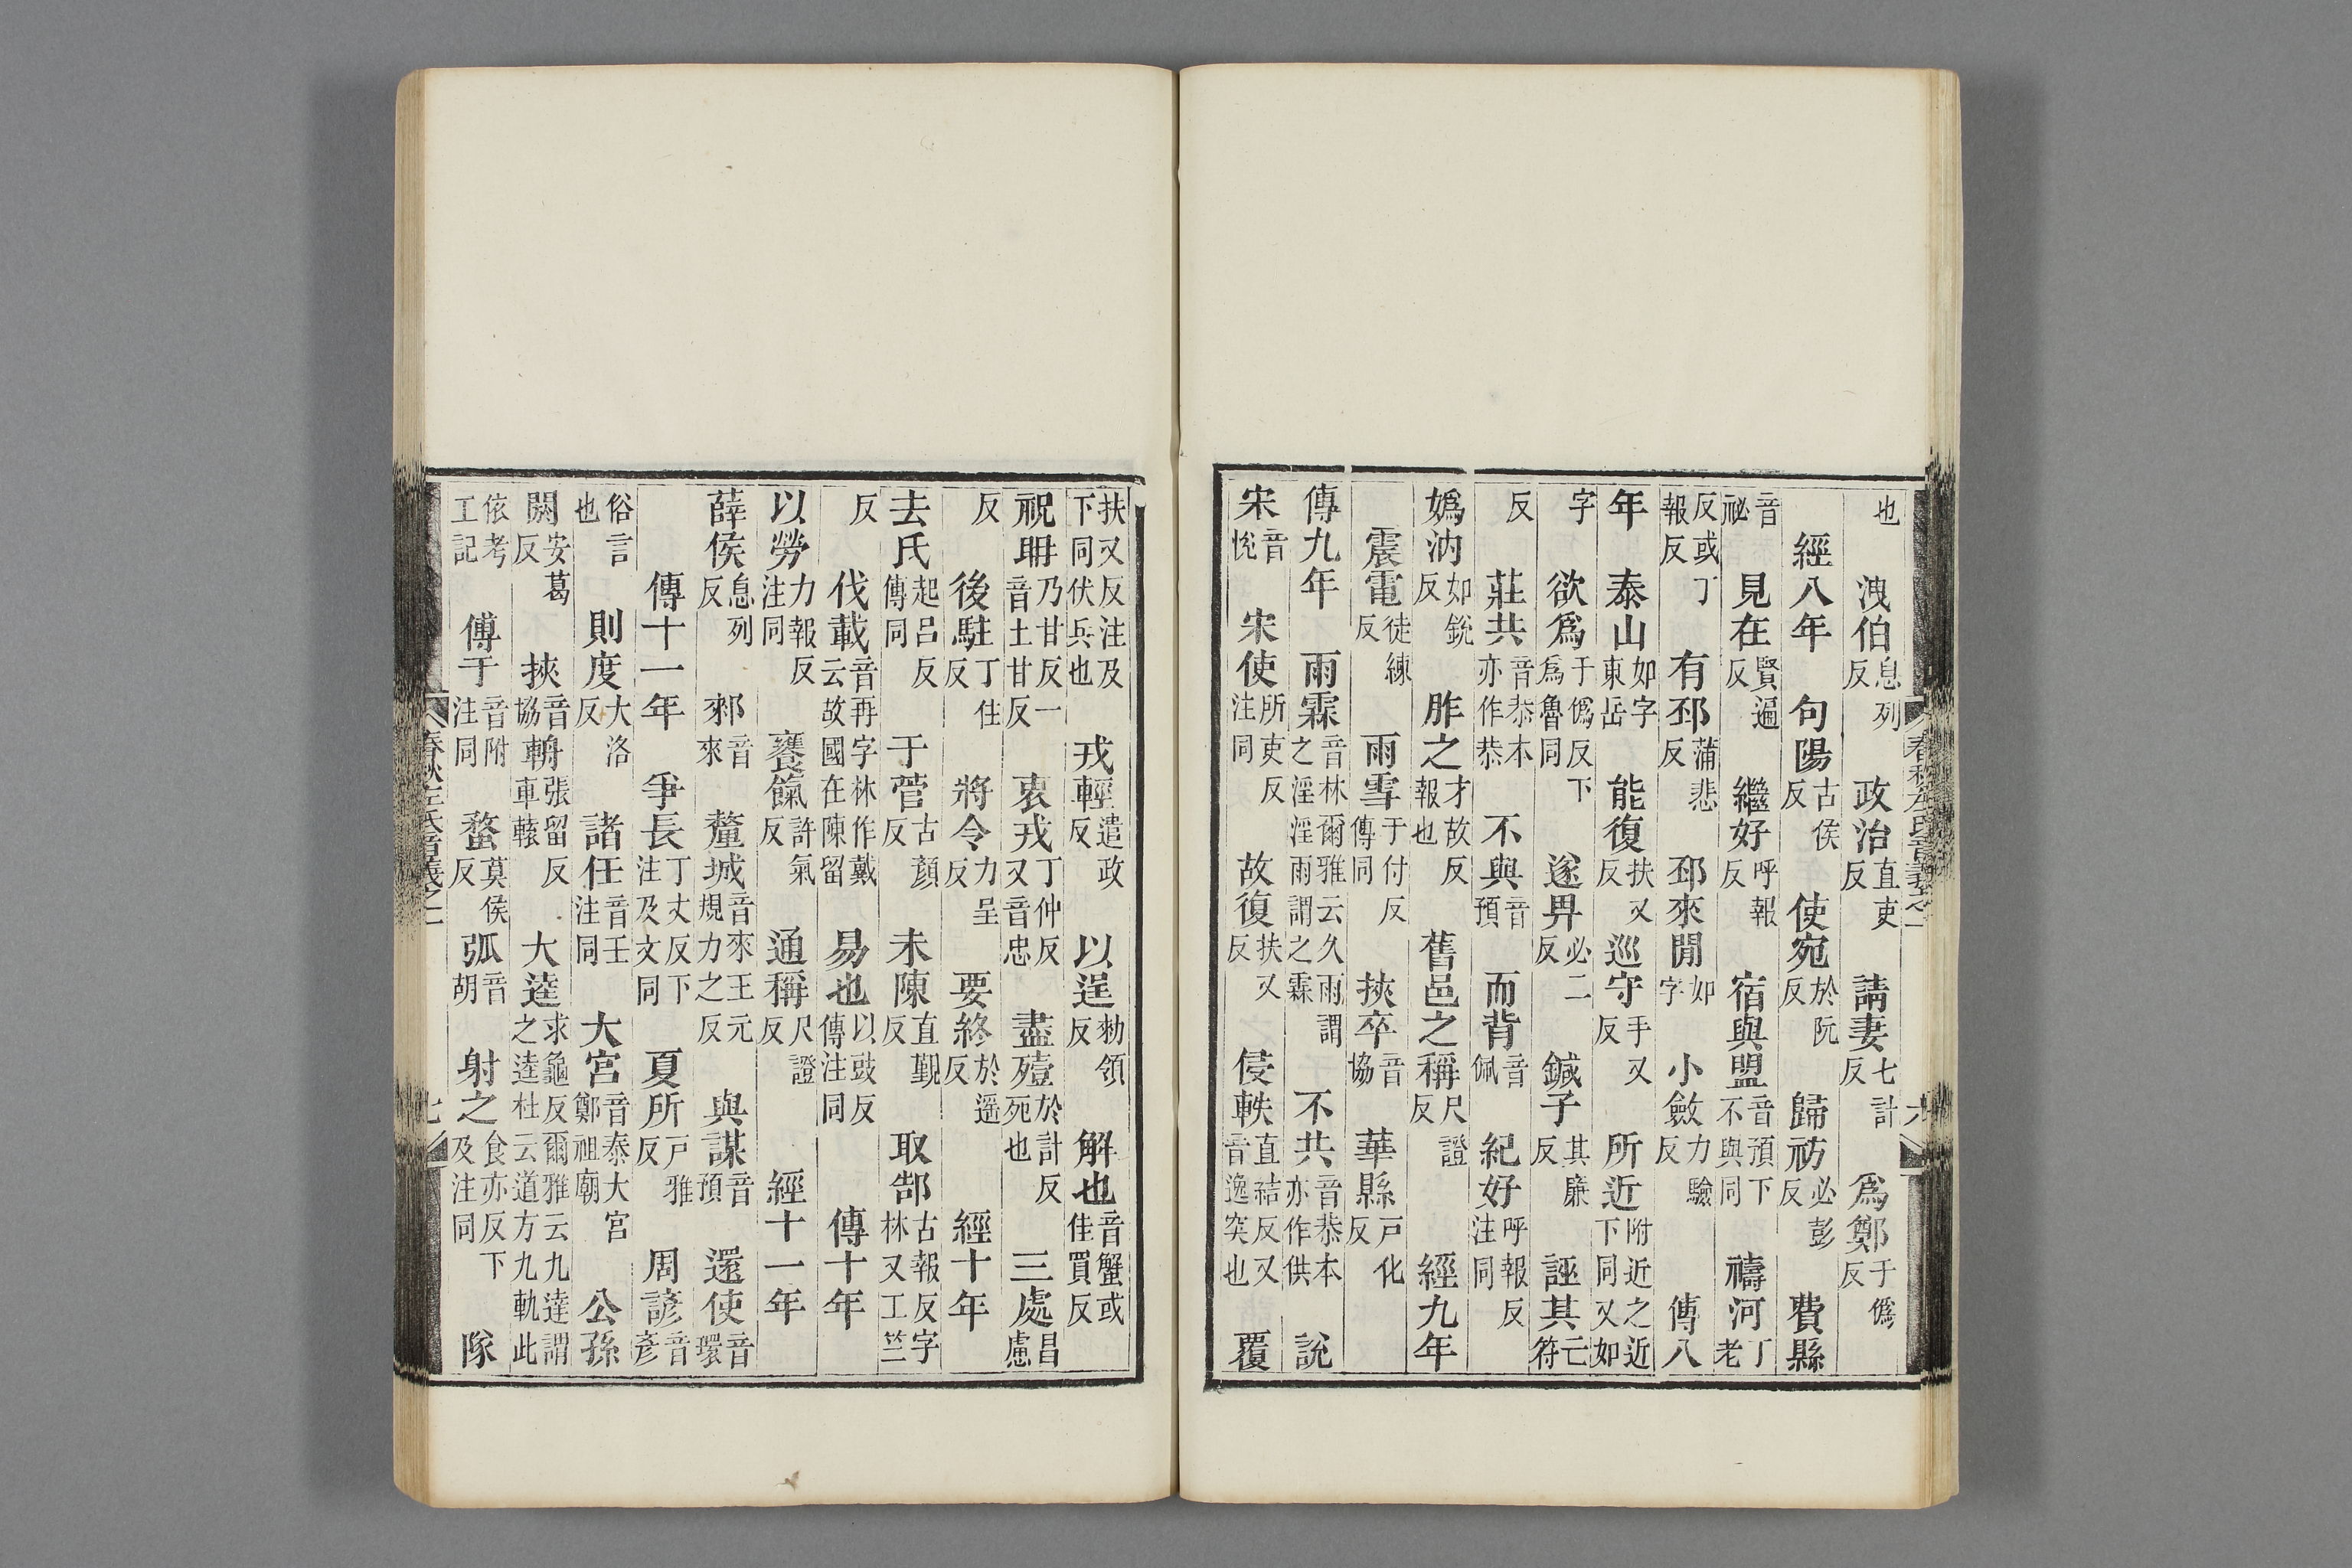 也　洩伯息列反　政治直吏反　請妻七計反　爲鄭于僞反
經八年　句陽古侯反　使宛於阮反　歸祊必彭反　費縣
音祕　見在賢遍反　繼好呼報反　宿與盟音預下不與同　禱河丁老
反或丁報反　有邳蒲悲反　邳來閒如字　小斂力驗反　傳八
年　泰山如字東岳　能復扶又反　巡守手又反　所近附近之近下同又如
字　欲爲于僞反下爲魯同　遂畀必二反　鍼子其廉反　誣其亡符
反　莊共音恭本亦作恭　不與音預　而背音佩　紀好呼報反注同
嬀汭如銳反　胙之才故反報也　舊邑之稱尺證反　經九年
震電徒練反　雨雪于付反傳同　挾卒音協　華縣戸化反
傳九年　雨霖音林爾雅云久雨謂之淫淫雨謂之霖　不共音恭本亦作供　說
宋音悅　宋使所吏反注同　故復扶又反　侵軼直結反又音逸突也　覆
扶又反注及下同伏兵也　戎輕遣政反　以逞勑領反　解也音蟹或佳買反
祝聃乃甘反一音土甘反　衷戎丁仲反又音忠　盡殪於計反死也　三處昌慮
反　後駐丁住反　將令力呈反　要終於遥反　經十年
去氏起呂反傳同　于菅古顔反　未陳直覲反　取郜古報反字林又工竺
反　伐載音再字林作戴云故國在陳留　易也以豉反傳注同　傳十年
以勞力報反注同　饔餼許氣反　通稱尺證反　經十一年
薛侯息列反　郲音來　釐城音來王元規力之反　與謀音預　還使音環
傳十一年　爭長丁丈反下注及文同　夏所戸雅反　周諺音彥
俗言也　則度大洛反　諸任音壬注同　大宮音泰大宮鄭祖廟　公孫
閼安葛反　挾音協輈張留反車轅　大逵求龜反爾雅云九達謂之逵杜云道方九軌此
依考工記　傅于音附注同　蝥莫侯反　弧音胡　射之食亦反下及注同　隊